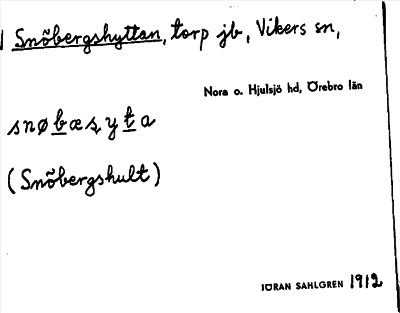 Snöbergshyttan, torp jb, Vikers sn,
Nora o. Hjulsjö hd, Örebro län
snøbæşyta
(Snöbergshult)
JÖRAN SAHLGREN 1912